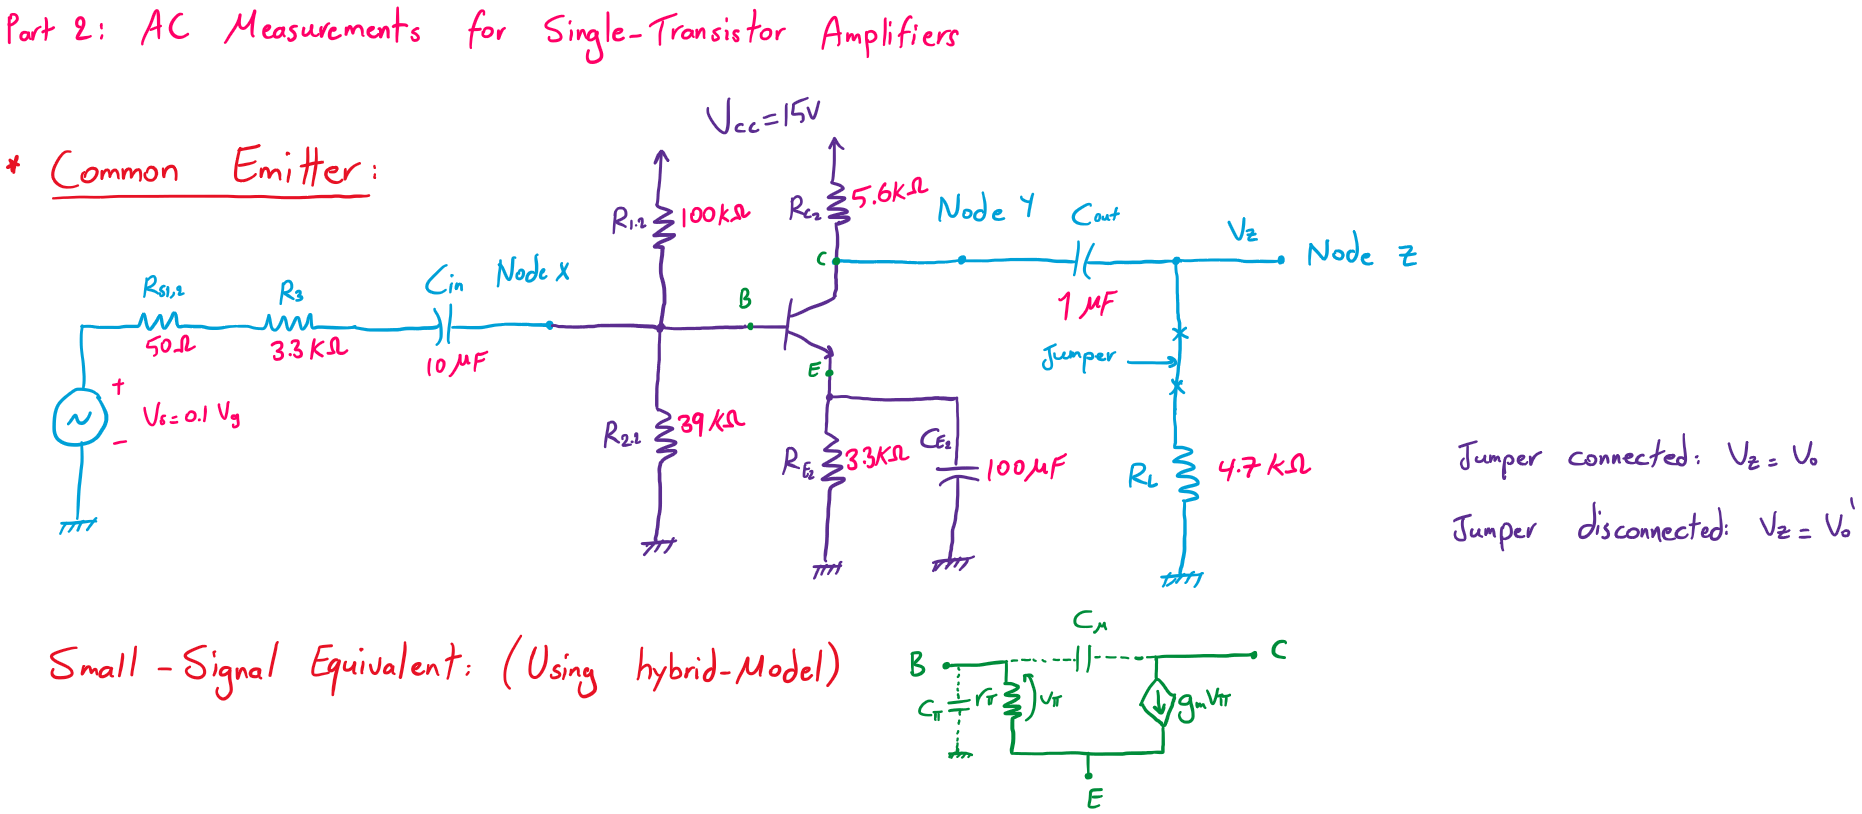 Part 2: AC Measurements for Single-Transistor Amplifiers
Vcc=15V
* Common Emitter:
R1.2 100kΩ
Rc2 5.6kΩ
Node Y
Cout
1 μF
Vz
Node Z
C
Rs1,2
50Ω
R3
3.3KΩ
Cin
10 μF
Node X
B
E
Jumper
+
Vs=0.1 Vg
-
R2.2 39KΩ
RE2 3.3KΩ
CE2
100μF
RL 4.7 KΩ
Jumper connected: Vz = Vo
Jumper disconnected: Vz = Vo'
Small-Signal Equivalent: (Using hybrid-Model)
Cμ
B
C
Cπ
rπ
vπ
gmVπ
E